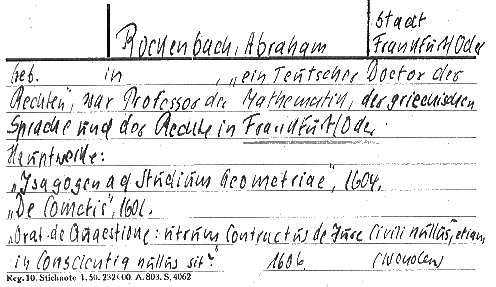 Rochenbach, Abraham
Stadt
Frankfurt/Oder
geb. in , „ein Teutscher Doctor der
Rechten", war Professor der Mathematik, der griechischen
Sprache und der Rechte in Frankfurt/Oder
Hauptwerke:
„Isagogen ad Studium Geometriae", 1604.
„De Cometis", 1601.
„Orat. de Quaestione: utrum Contractus de Jure Civili nullus, etiam
in Conscientia nullus sit?" 1606.
Reg. 10. Stichnote 1. 50. 232000. A. 803. S. 4062